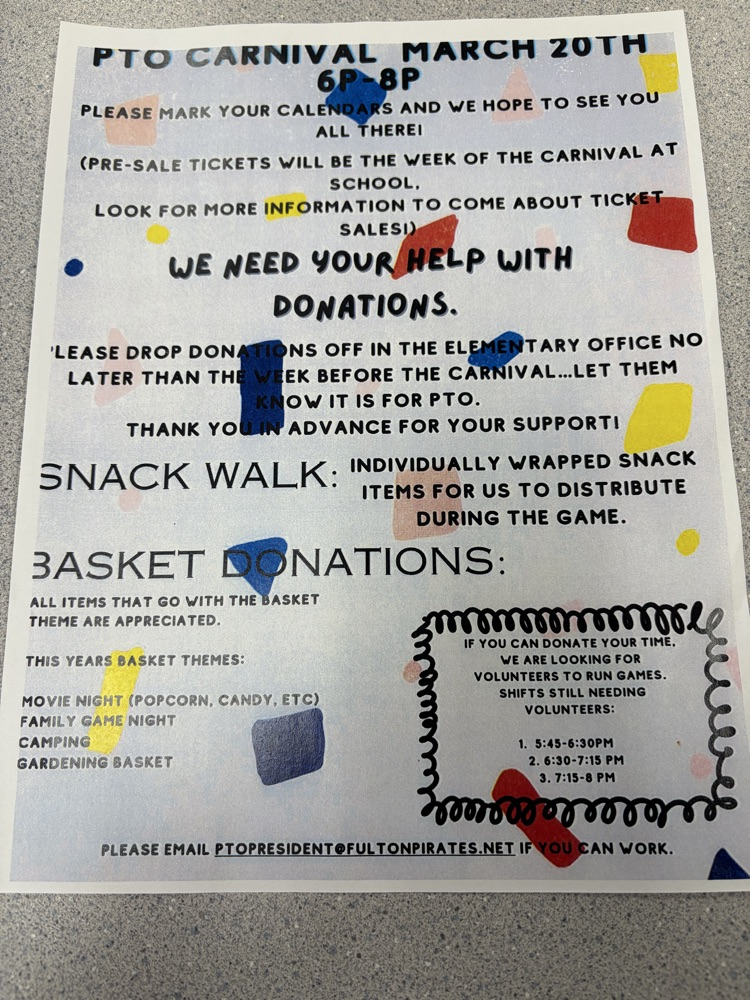 PTO CARNIVAL MARCH 20TH
6P-8P
PLEASE MARK YOUR CALENDARS AND WE HOPE TO SEE YOU
ALL THERE!
(PRE-SALE TICKETS WILL BE THE WEEK OF THE CARNIVAL AT
SCHOOL,
LOOK FOR MORE INFORMATION TO COME ABOUT TICKET
SALES!)
WE NEED YOUR HELP WITH
DONATIONS.
PLEASE DROP DONATIONS OFF IN THE ELEMENTARY OFFICE NO
LATER THAN THE WEEK BEFORE THE CARNIVAL...LET THEM
KNOW IT IS FOR PTO.
THANK YOU IN ADVANCE FOR YOUR SUPPORT!
SNACK WALK: INDIVIDUALLY WRAPPED SNACK
ITEMS FOR US TO DISTRIBUTE
DURING THE GAME.
BASKET DONATIONS:
ALL ITEMS THAT GO WITH THE BASKET
THEME ARE APPRECIATED.
THIS YEARS BASKET THEMES:
MOVIE NIGHT (POPCORN, CANDY, ETC)
FAMILY GAME NIGHT
CAMPING
GARDENING BASKET
IF YOU CAN DONATE YOUR TIME,
WE ARE LOOKING FOR
VOLUNTEERS TO RUN GAMES.
SHIFTS STILL NEEDING
VOLUNTEERS:
1. 5:45-6:30PM
2. 6:30-7:15 PM
3. 7:15-8 PM
PLEASE EMAIL PTOPRESIDENT@FULTONPIRATES.NET IF YOU CAN WORK.